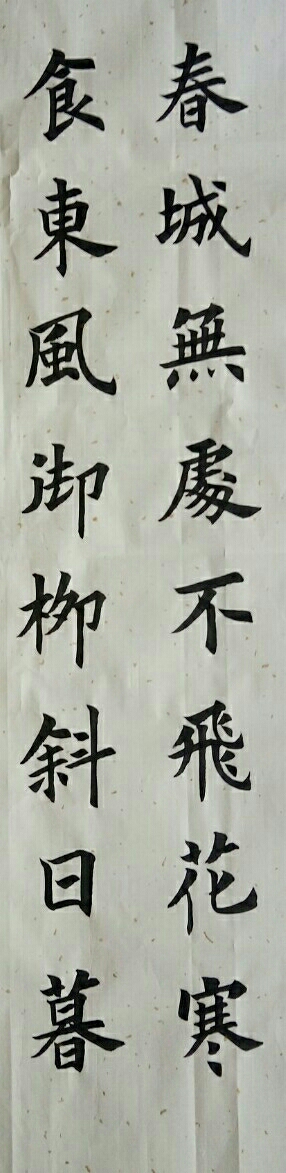 春城無處不飛花寒
食東風御柳斜日暮